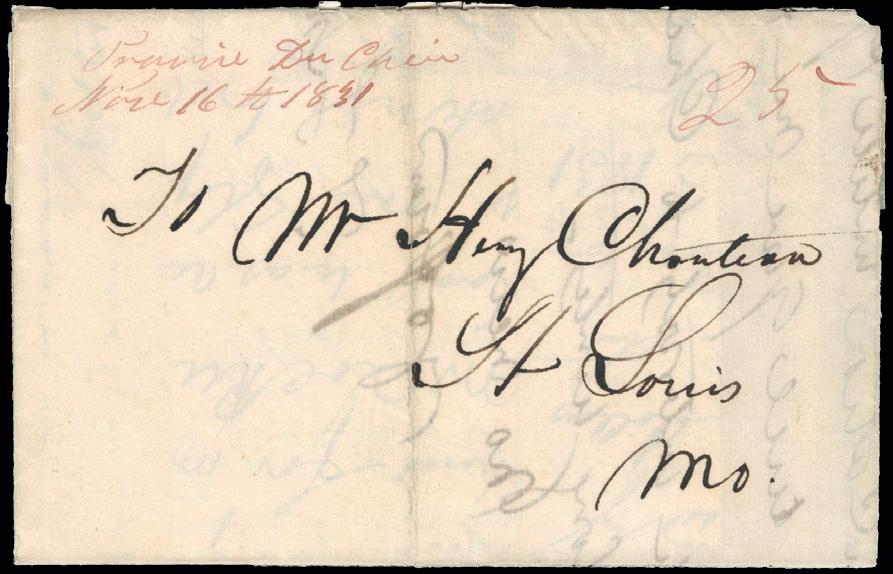 Prairie Du Chein
Nove 16th 1831
25
To Mr Henry Chouteau
St Louis
Mo.